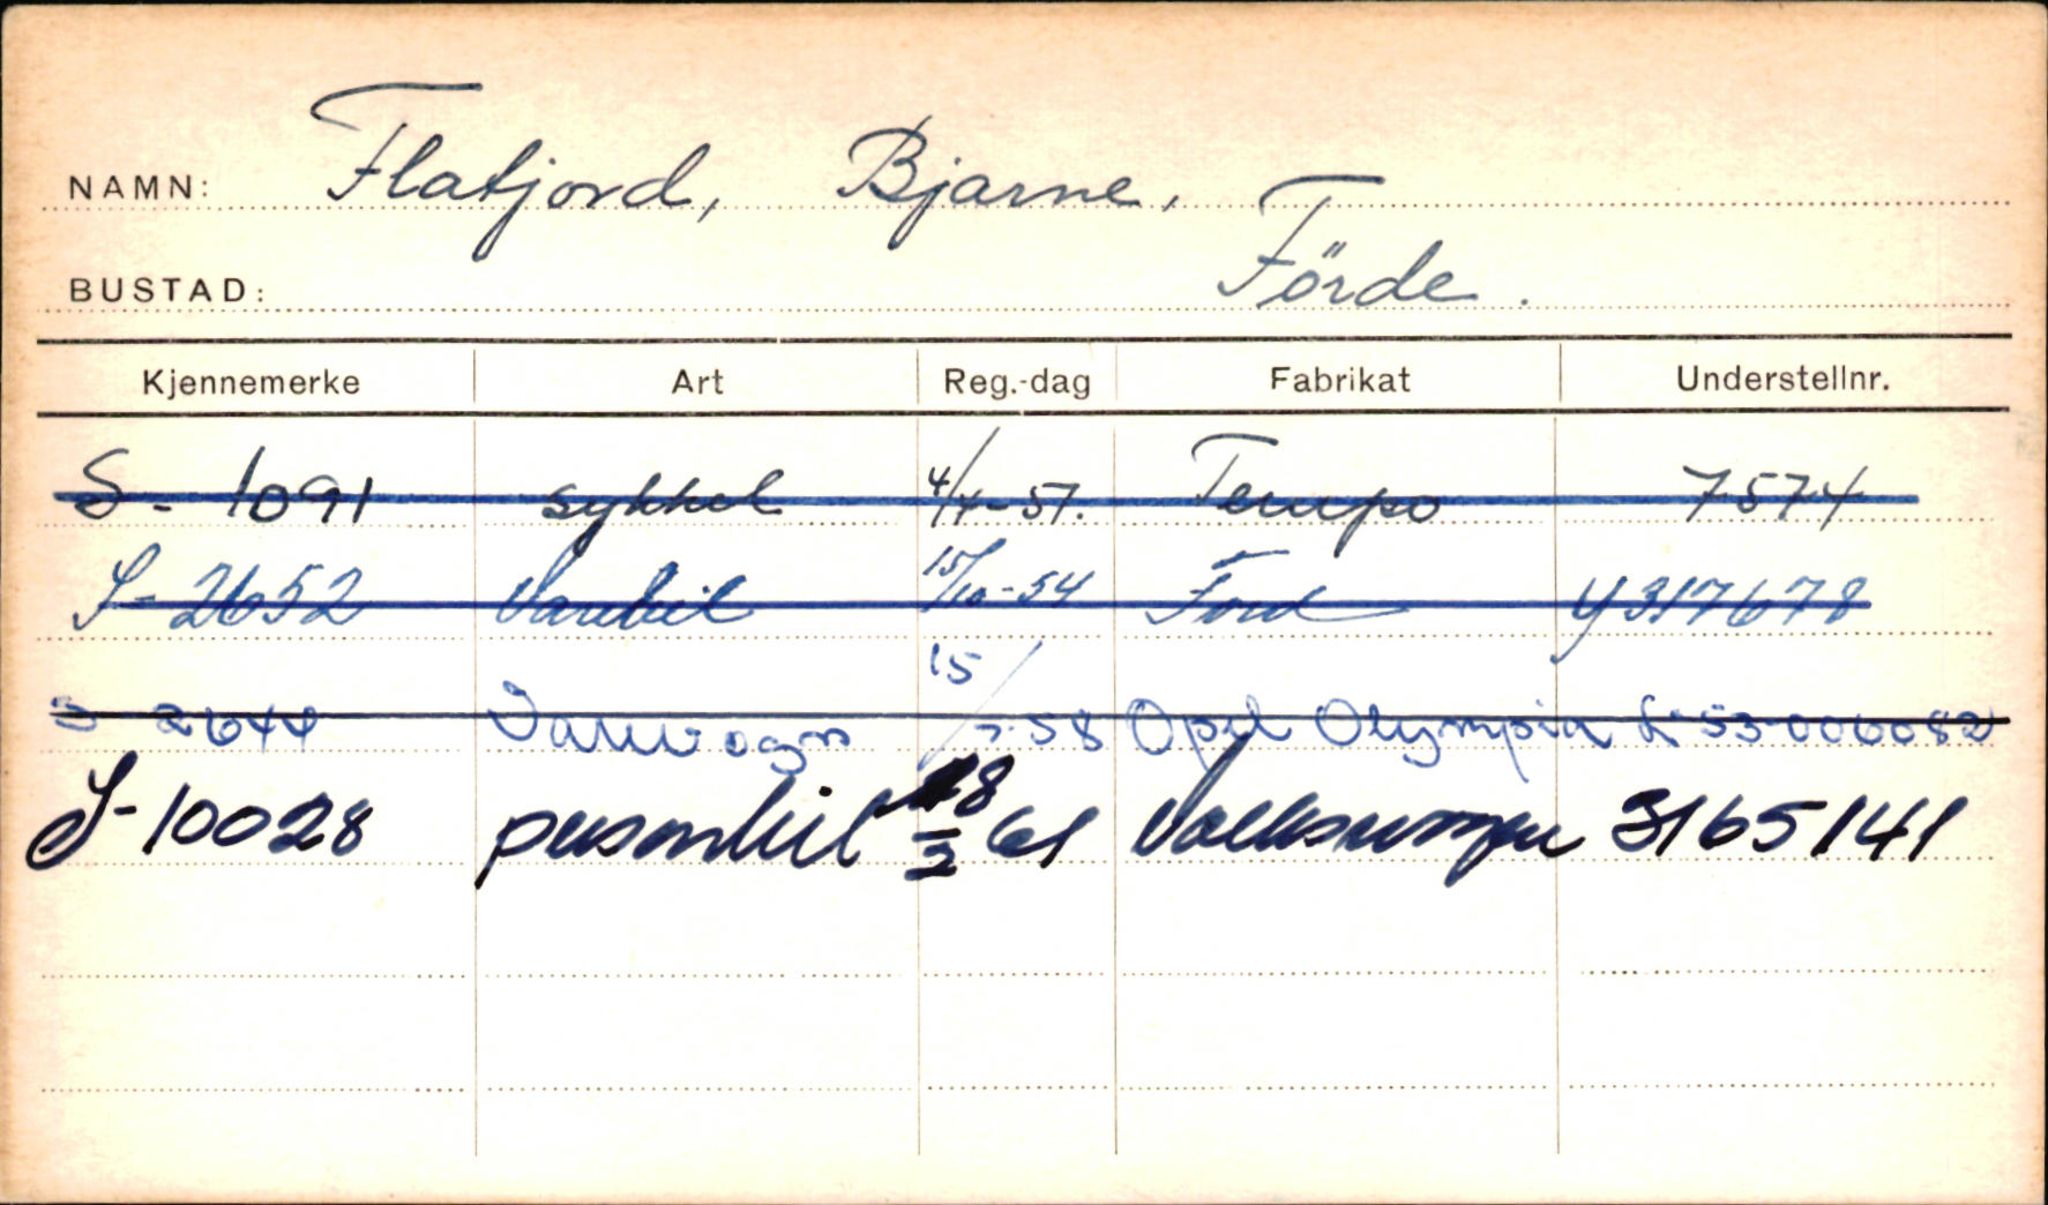 NAMN: Flatjord, Bjarne,
BUSTAD: Förde.
Kjennemerke Art Reg.-dag Fabrikat Understellnr.
S - 1091 sykkel 4/4-51. Tempo 7574
S-2652 Varebil 15/10-54 Ford Y317678
S 2644 Varevogn 15/7.58 Opel Olympia L 53-006082
S-10028 personbil 18/2 61 Volkswagen 3165141